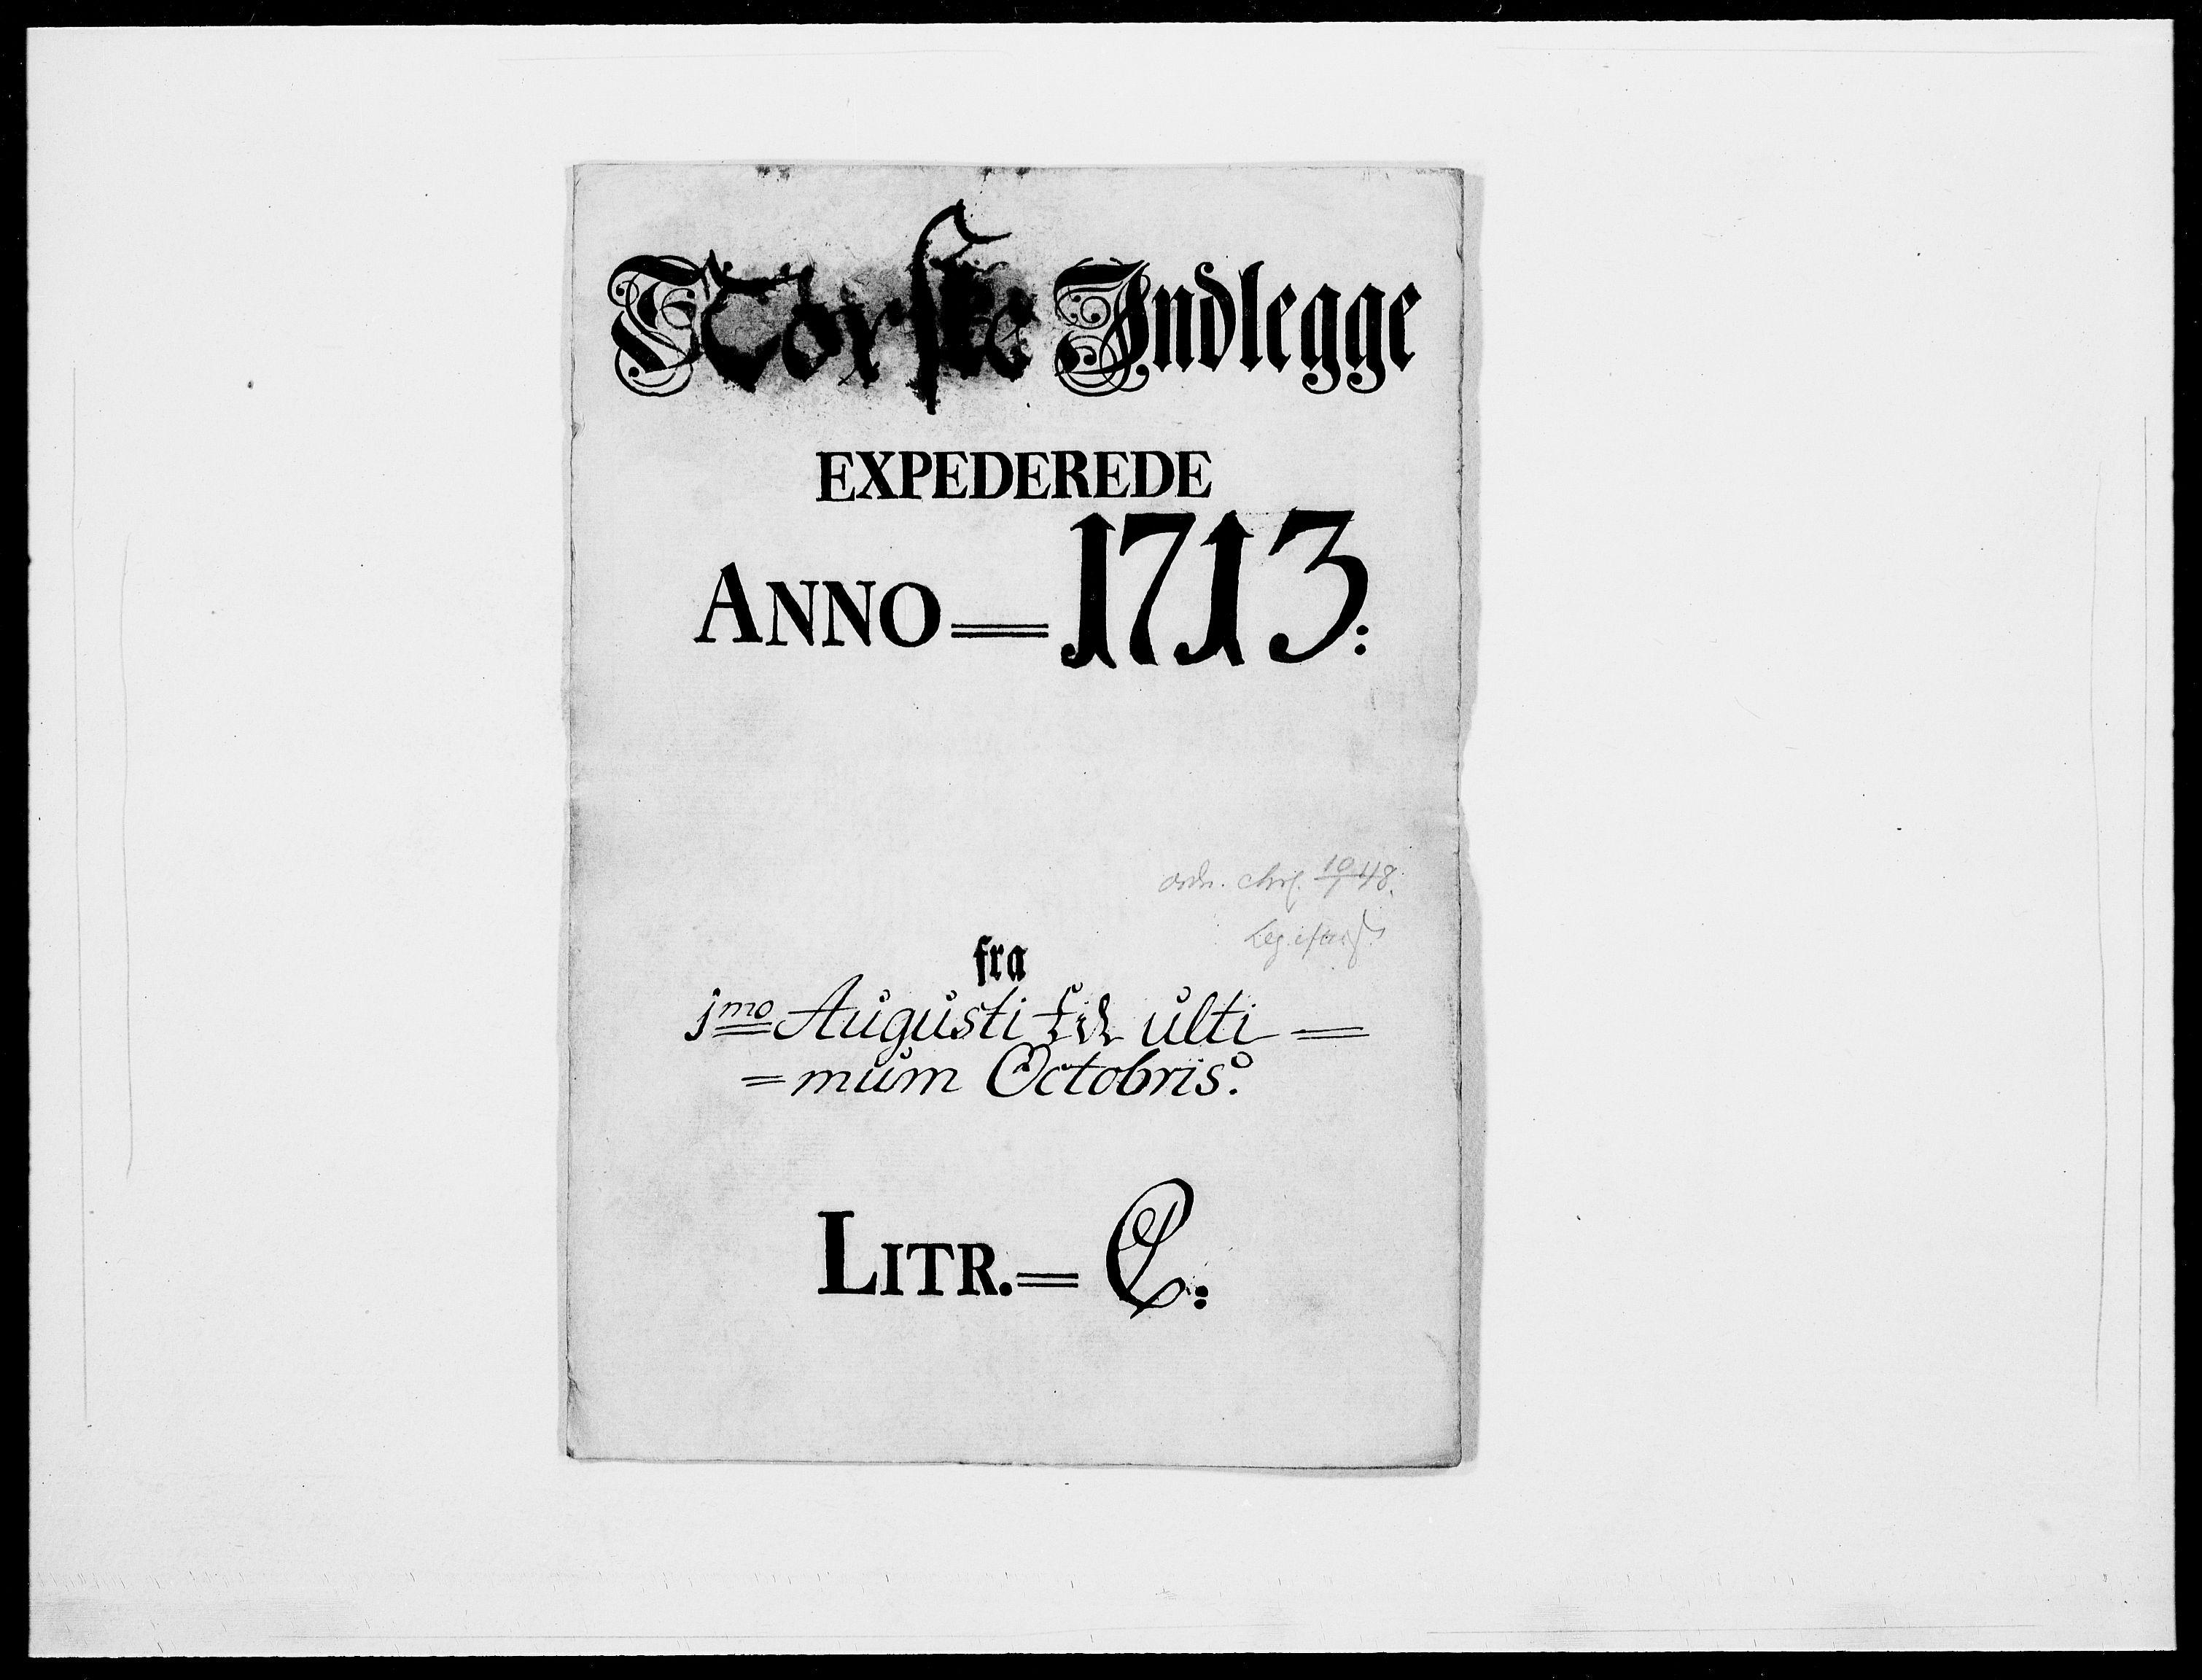 Norske Indlegge
EXPEDEREDE
ANNO = 1713:
10/1 48.
fra
1mo Augusti til ulti =
= mum Octobris:
LITR. = C: